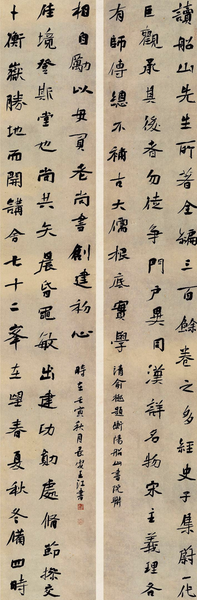 讀船山先生所著全編三百餘卷之多經史子集蔚一代
巨觀承其後者勿徒爭門戶異同漢詳名物宋主義理各
有師傳總不補古大儒根底實學
清俞樾題衡陽船山書院聯
卜衡嶽勝地而開講舍七十二峯在望春夏秋冬備四時
佳境登斯堂也尚其矢晨昏黽敏出建功勳處脩節操交
相自勵以毋負老尚書創建初心
時在壬寅秋月長安江書